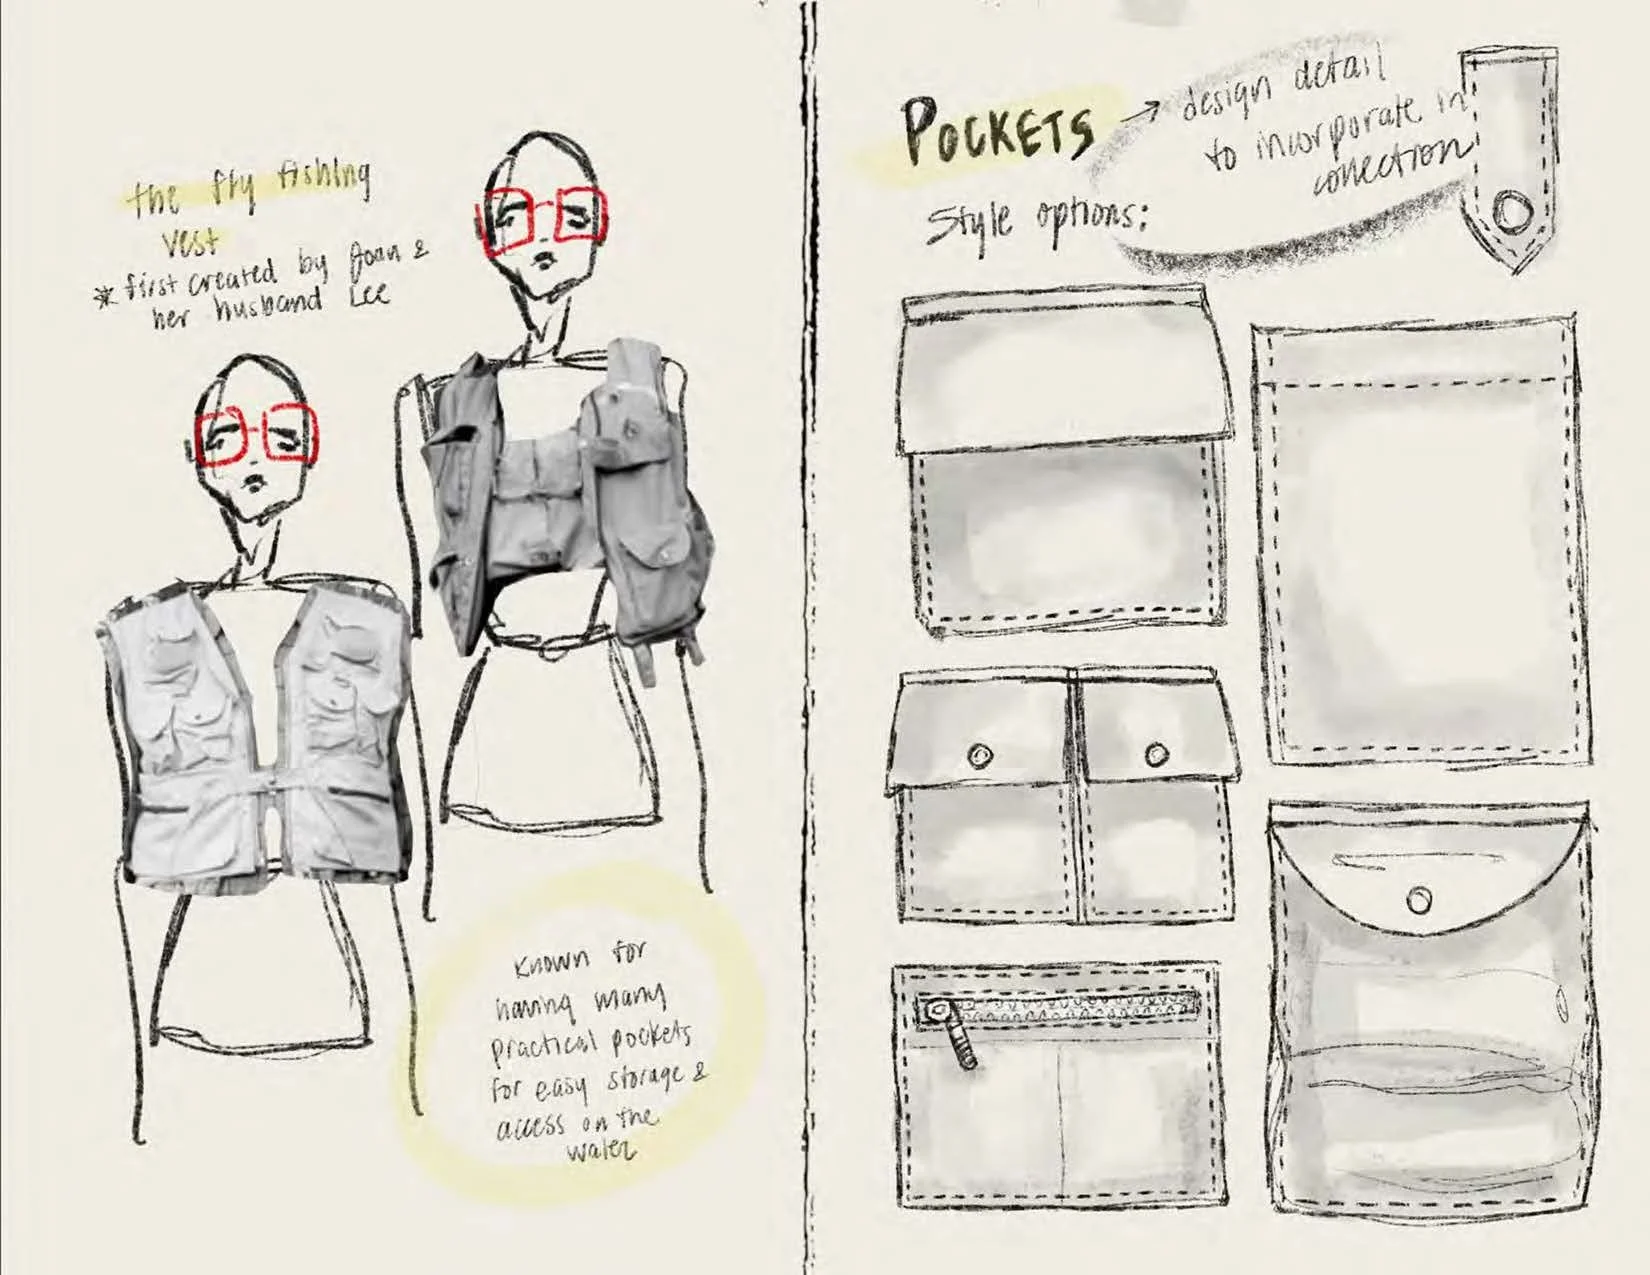 the fly fishing
vest
* first created by Joan &
her husband Lee
Known for
having many
practical pockets
for easy storage &
access on the
water
POCKETS → design detail
to incorporate in
collection
Style options: